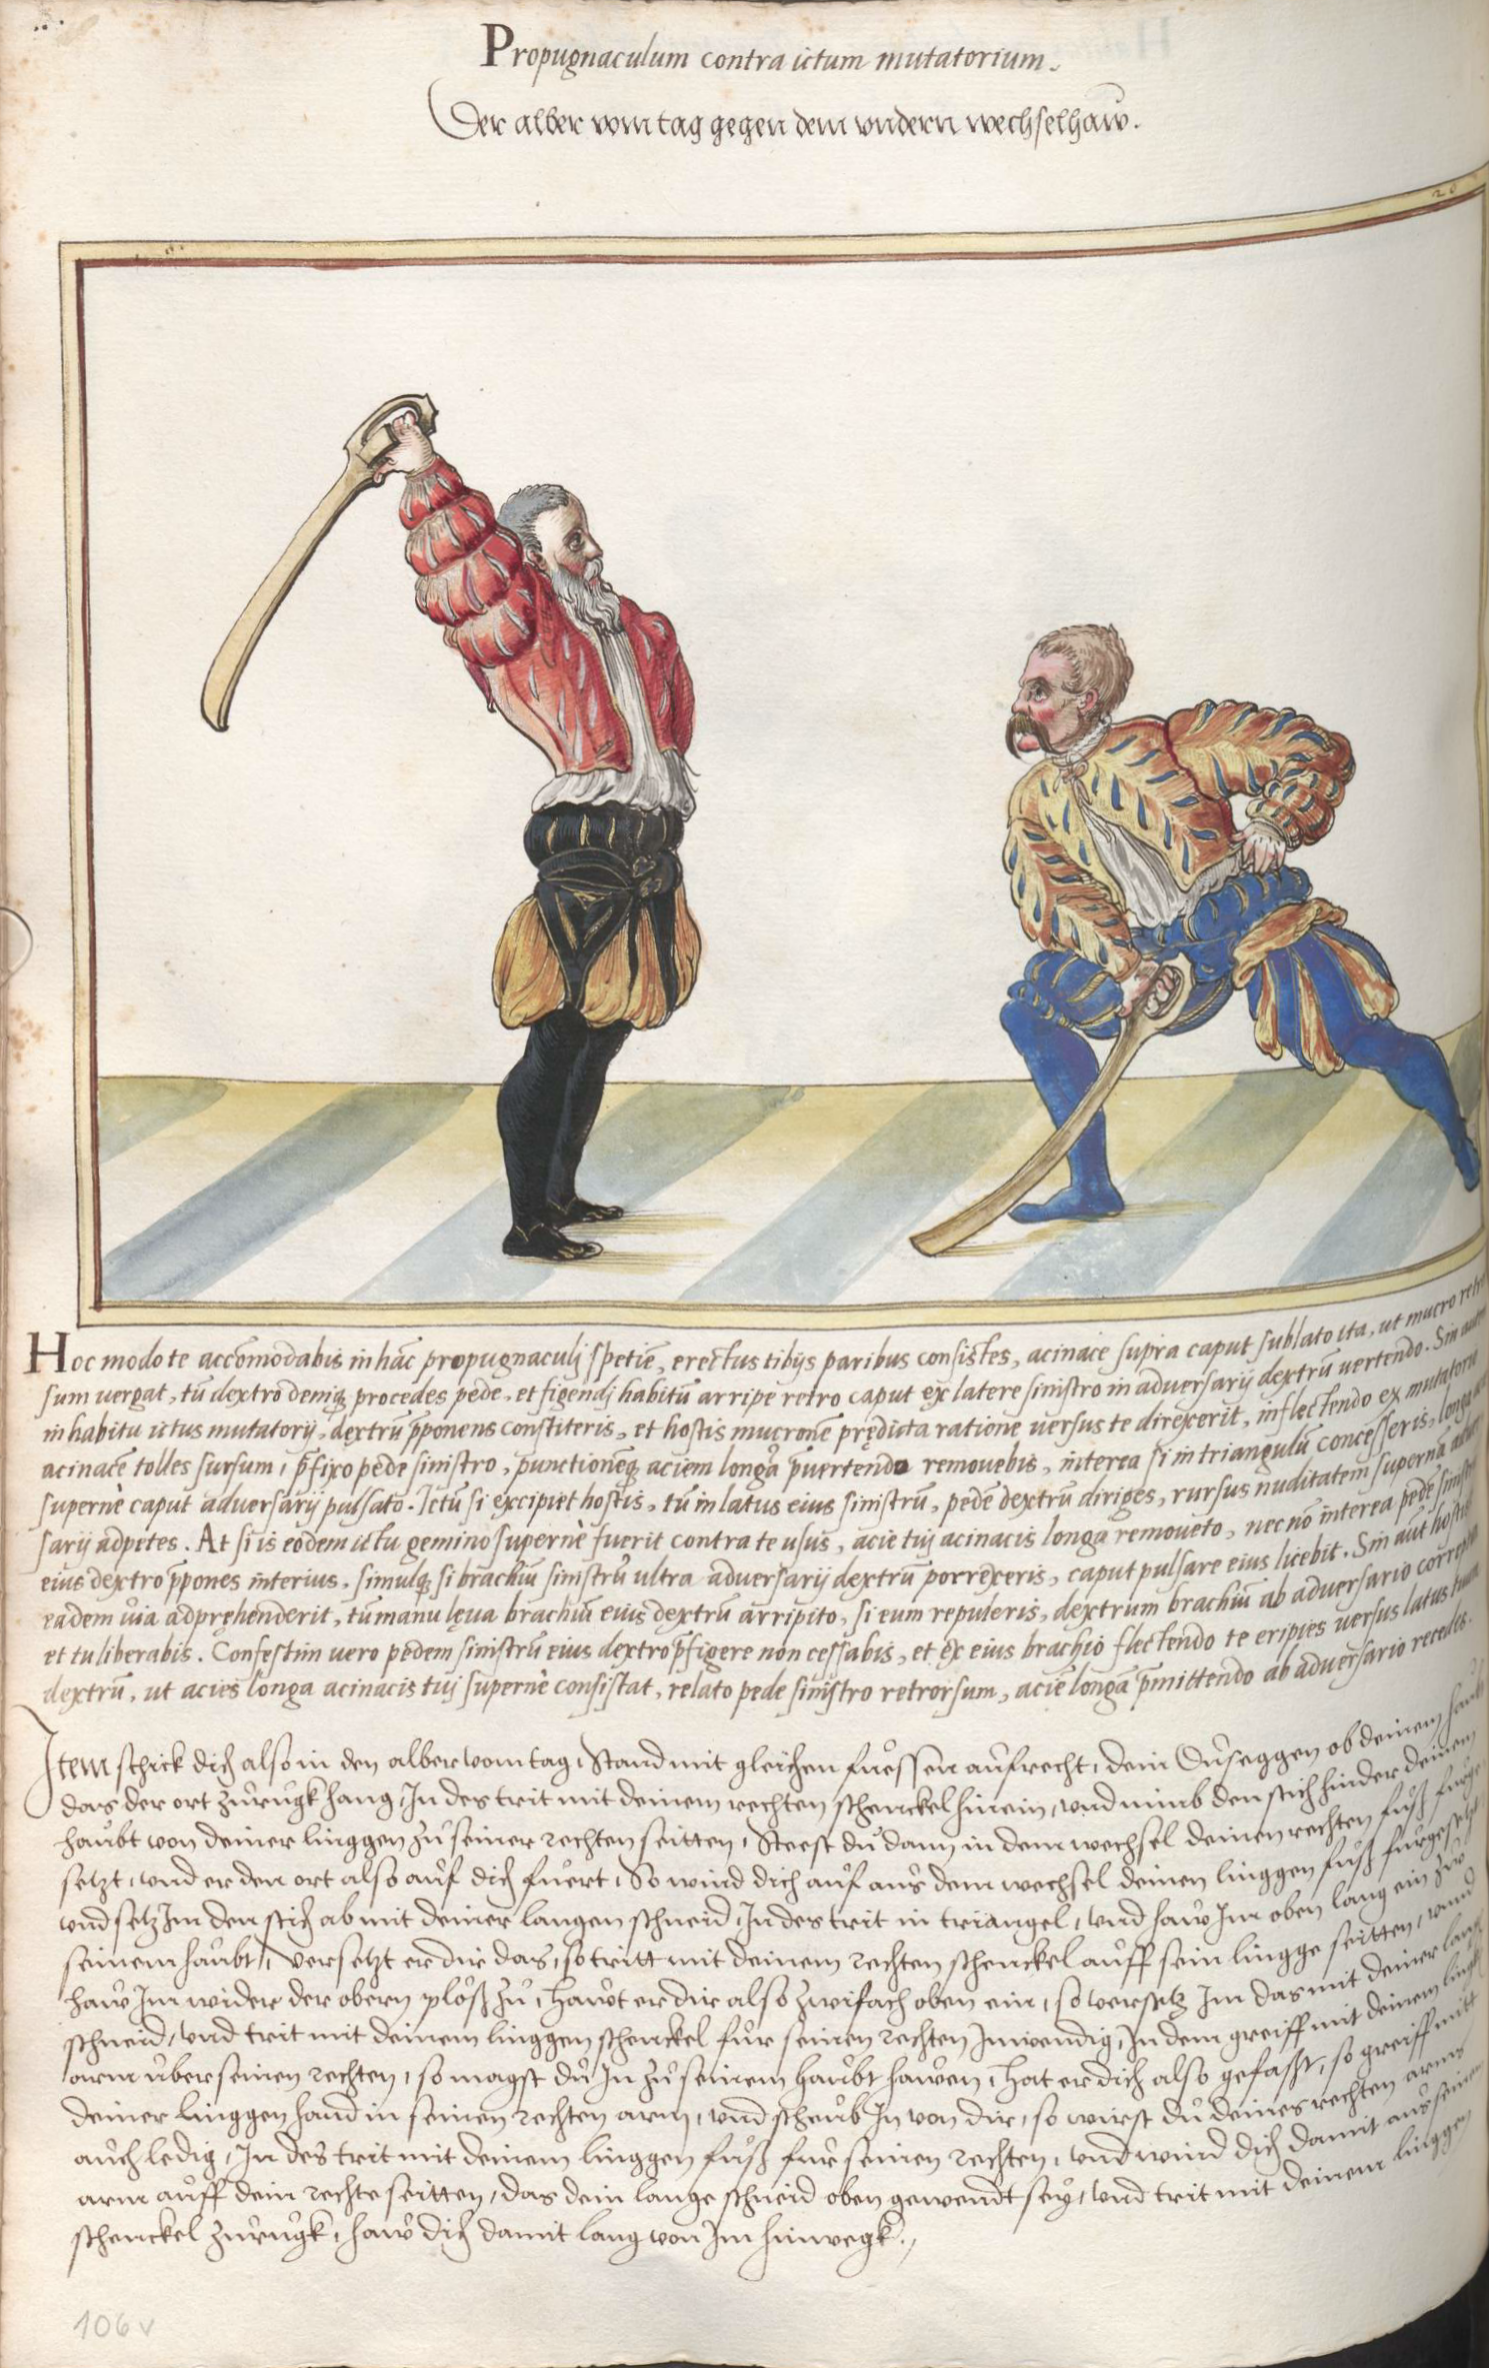 Propugnaculum contra ictum mutatorium.
Der alber vom tag gegen dem undern wechselhaw.
20
Hoc modo te accōmodabis in hāc propugnaculj spetiē, erectus tibijs paribus consistes, acinace supra caput sublato ita, ut mucro retror
sum vergat, tū dextro deniq̨ procedes pede, et figendj habitū arripe retro caput ex latere sinistro in adversarij dextrū vertendo. Sin autem
in habitu ictus mutatorij, dextrū p̄ponens constiteris, et hostis mucronē prędicta ratione versus te direxerit, inflectendo ex mutatorio
acinacē tolles sursum, p̄fixo pede sinistro, punctionēq̨ aciem longā p̄vertendo removebis, interea si in triangulū concesseris, longa
supernè caput adversarij pulsato. Ictū si excipiet hostis, tū in latus eius sinistrū, pedē dextrū diriges, rursus nuditatem supernā adver
sarij adpetes. At si is eodem ictu gemino supernè fuerit contra te usus, acie tuj acinacis longa removeto, nec nō interea pede sinistro
eius dextro p̄pones interius, simulq̨ si brachiū sinistrū ultra adversarij dextrū porrexeris, caput pulsare eius licebit. Sin aūt hostis
eadem via adpręhenderit, tū manu lęva brachiū eius dextrū arripito, si eum repuleris, dextrum brachiū ab adversario correptū
et tu liberabis. Confestim vero pedem sinistrū eius dextro p̄figere non cessabis, et ex eius brachio flectendo te eripies versus latus tuum
dextrū, ut acies longa acinacis tuj supernè consistat, relato pede sinistro retrorsum, aciē longā p̄mittendo ab adversario recedes.
Item schick dich also in den alber vom tag, Stand mit gleichen fůessen aůfrecht, dein Důseggen ob deinem haubt
das der ort zůrůgk hang, In des trit mit deinem rechten schenckel hinein, und nimb den stich hinder deinem
haůbt von deiner linggen zů seiner rechten seitten, Steest dů dann in dem wechsel deinen rechten fůß fůrge
setzt, und er den ort also aůf dich fůert, So wind dich aůf aůs dem wechsel deinen linggen fůß fůrgesetzt
und setz Im den stich ab mit deiner langen schneid, In des trit in triangel, und haw Im oben lang ein zů
seinem haůbt, versetzt er dir das, so tritt mit deinem rechten schenckel aůff sein lingge seitten, unnd
haw Im wider der obern plöß zů, Hawt er dir also zwifach oben ein, so versetz Im das mit deiner langen
schneid, und trit mit deinem linggen schenckel für seinen rechten Inwendig, In dem greiff mit deinem linggen
arm über seinen rechten, so magst dů In zů seinem haůbt hawen, Hat er dich also gefasst, so greiff mitt
deiner linggen hand in seinen rechten arm, und scheůb In von dir, so wirst dů deines rechten arms
aůch ledig, In des trit mit deinem linggen fůß für seinen rechten, und wind dich damit aůs seinem
arm aůff dein rechte seitten, das dein lange schneid oben gewendt seÿ, und trit mit deinem linggen
schenckel zůrůgk, haw dich damit lang von Im hinwegk.
106 v